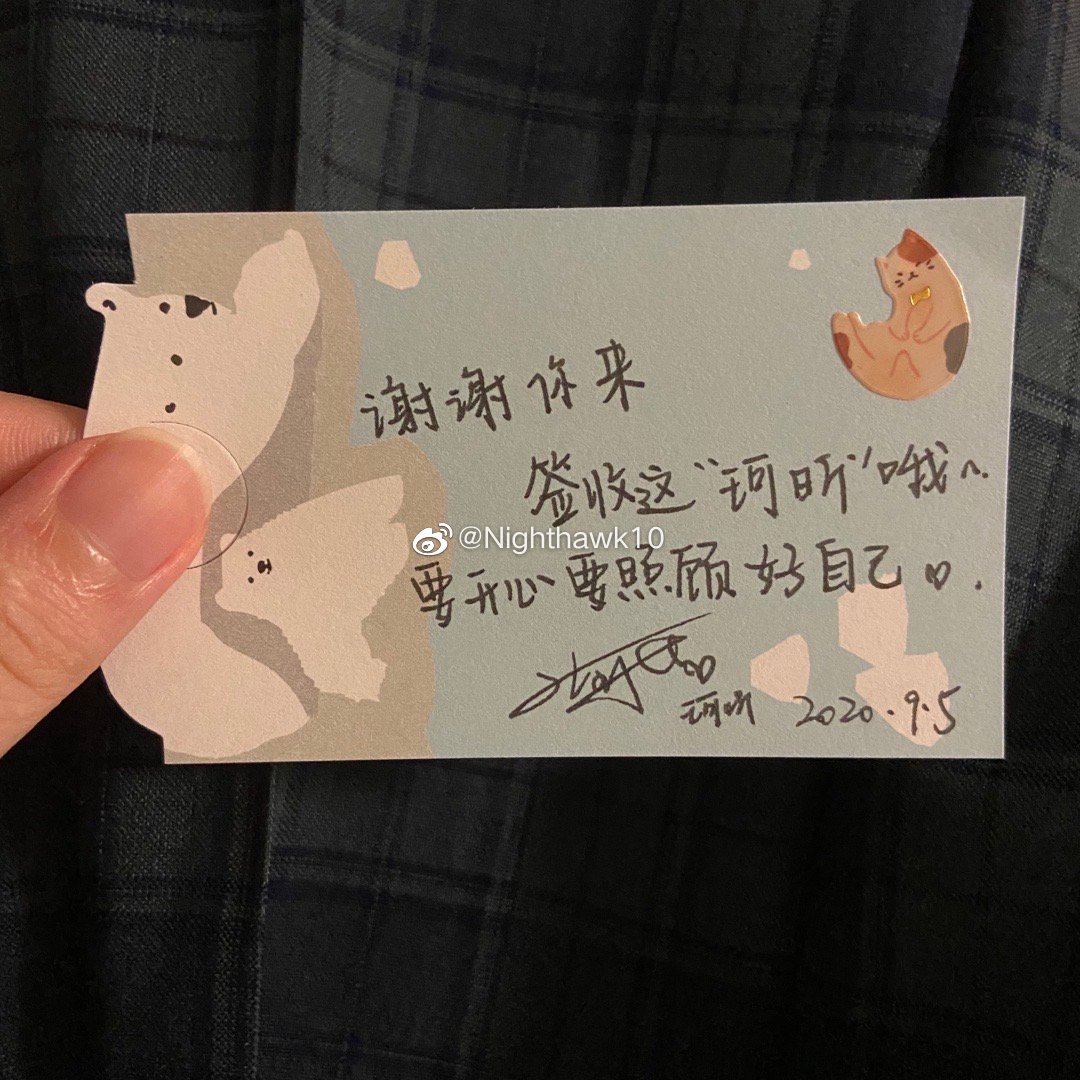 谢谢你来
签收这“珂昕”哦~
@Nighthawk10
要开心要照顾好自己
珂昕 2020.9.5